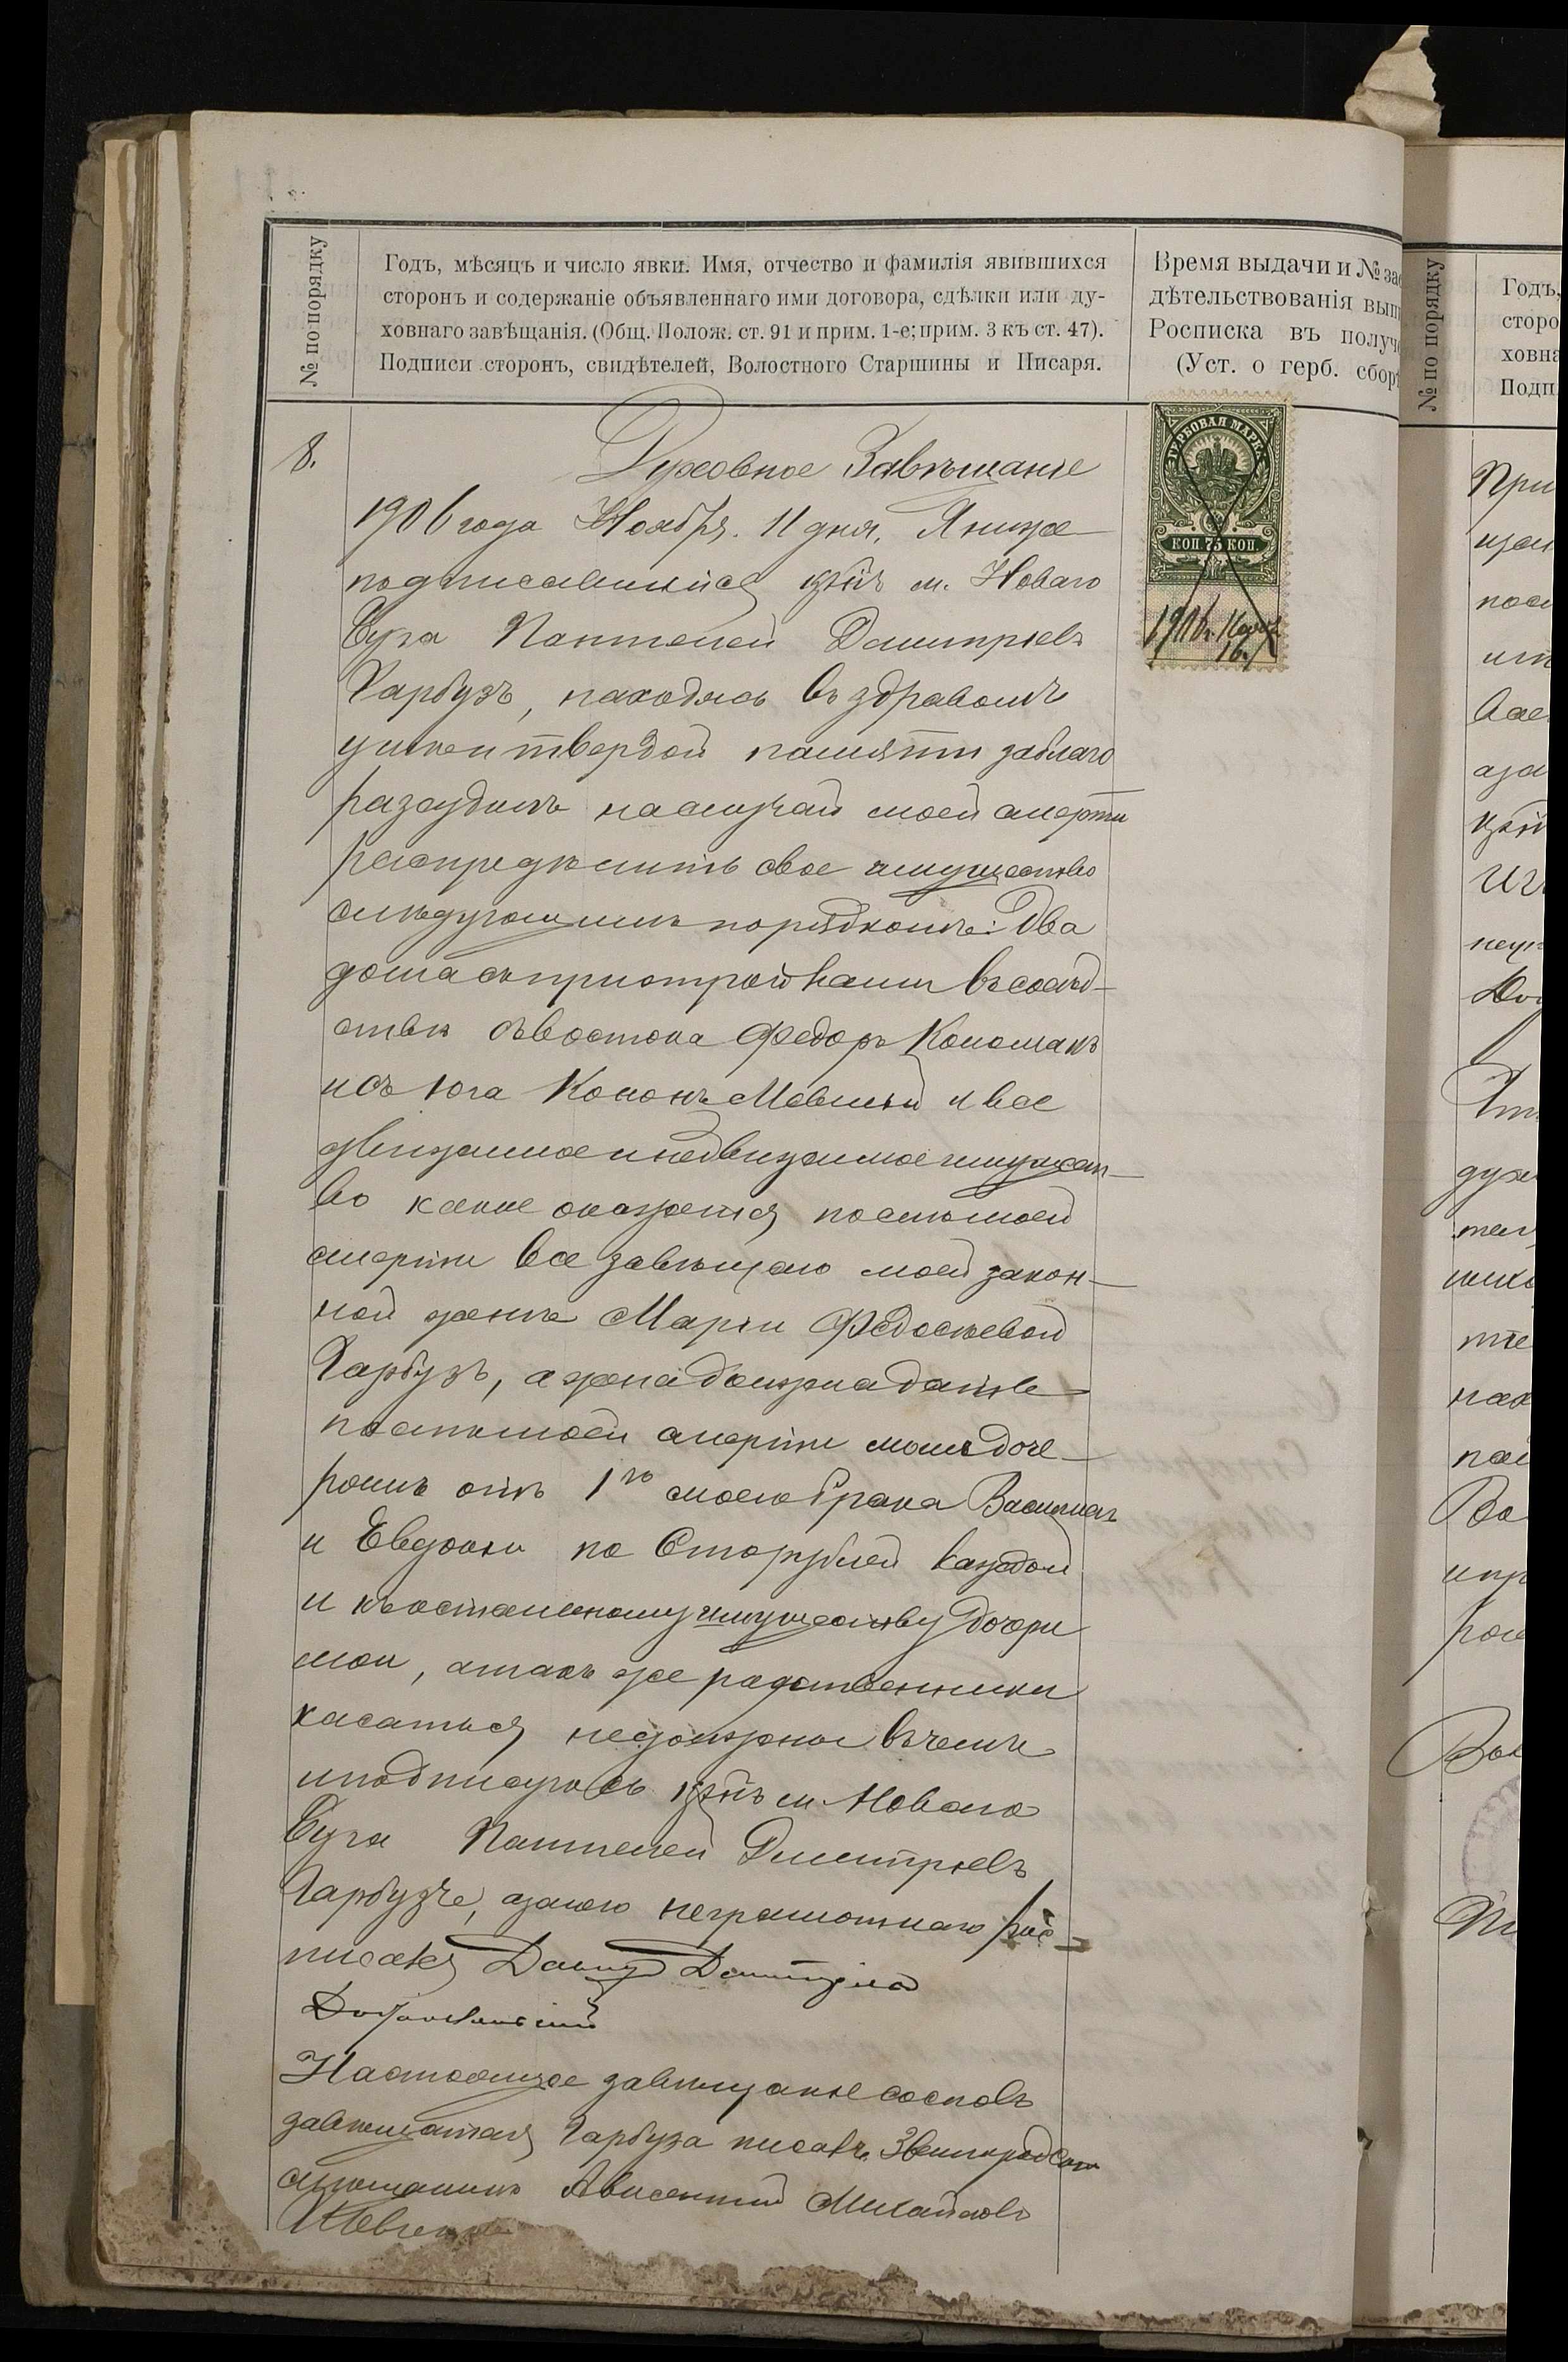 № по порядку
Годъ, мѣсяцъ и число явки. Имя, отчество и фамилія явившихся
сторонъ и содержаніе объявленнаго ими договора, сдѣлки или ду-
ховнаго завѣщанія. (Общ. Полож. ст. 91 и прим. 1-е; прим. 3 къ ст. 47).
Подписи сторонъ, свидѣтелей, Волостного Старшины и Писаря.
Время выдачи и № зас
дѣтельствованія вып
Росписка въ получ
(Уст. о герб. сбор
8.
Духовное Завѣщаніе
1906 года Ноября. 11 дня, Я ниже
подписавшійся крнъ м. Новаго
Буга Пантелей Дмитріевъ
Гарбузъ, находясь въ здравомъ
умѣ и твердой памяти заблаго
разсудилъ на случай моей смерти
распредѣлить свое имущество
слѣдующимъ порядкомъ: Два
дома съ пристройками въ сосѣд-
ствѣ съ востока Федоръ
и съ юга Кононъ и все
движимое и недвижимое имущест-
во какое окажется послѣ моей
смерти все завѣщаю моей закон-
ной женѣ Маріи Федосѣевой
Гарбузъ, а жена должна дать
послѣ моей смерти моимъ доче-
рямъ отъ 1го моего брака
и Евдокіи по Сто рублей каждой
и къ остальному имуществу дочери
мои, а такъ же родственники
касаться не должны въ чемъ
и подписуюсь крнъ м. Новаго
Буга Пантелей Дмитріевъ
Гарбузъ, а за него неграмотнаго рос-
писался
Настоящее завѣщаніе со словъ
завѣщателя Гарбуза писалъ
Михайловъ
ГЕРБОВАЯ МАРКА
КОП 75 КОП
1906 г.
16
№ по порядку
Годъ,
сторо
ховна
Подп